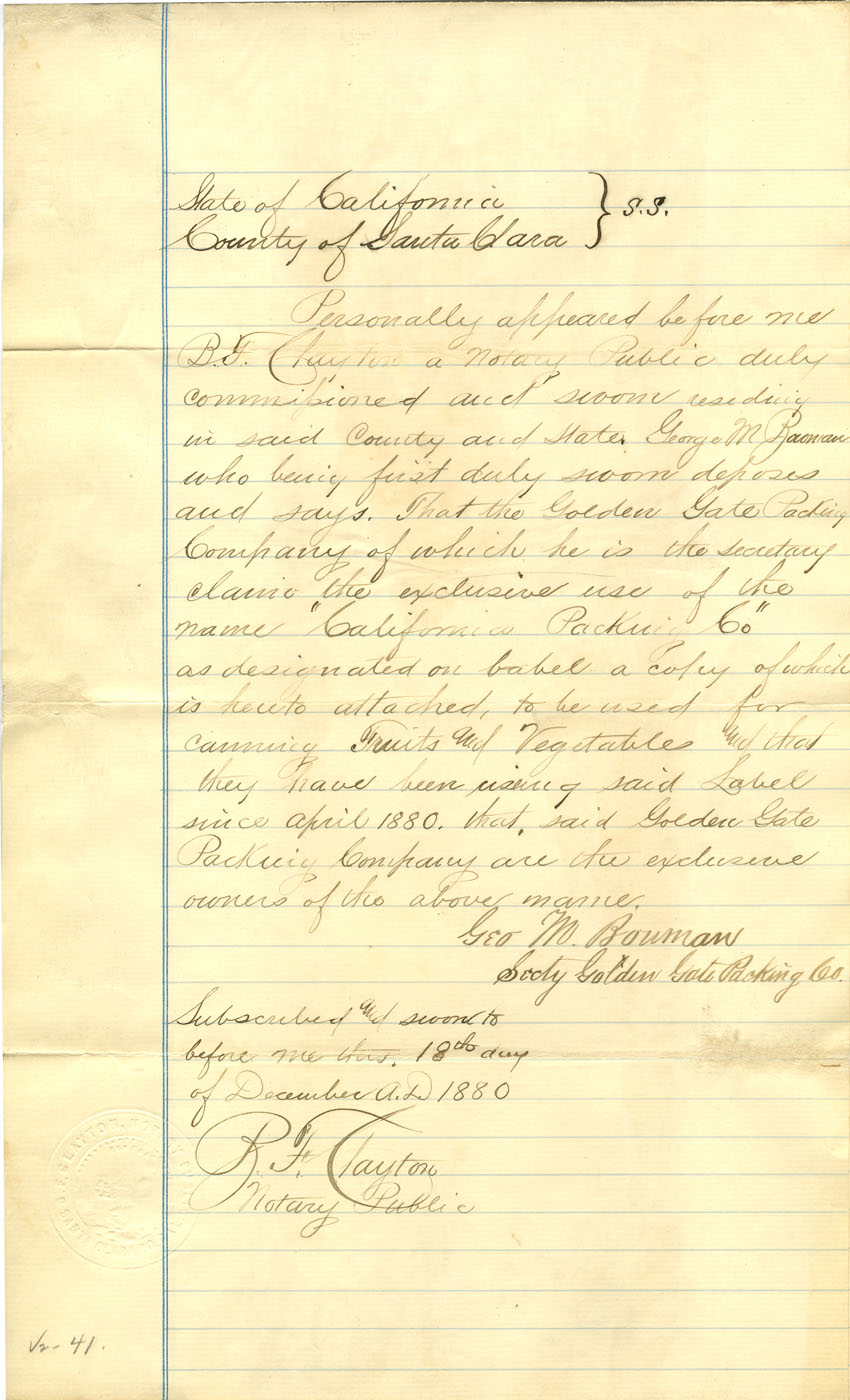 State of California } S.S.
County of Santa Clara
Personally appeared before me
B.F. Clayton a Notary Public duly
commissioned and sworn residing
in said County and State. George M Bowman
who being first duly sworn deposes
and says. That the Golden Gate Packing
Company of which he is the secretary
claims the exclusive use of the
name "California Packing Co"
as designated on Label a copy of which
is hereto attached, to be used for
canning Fruits and Vegetables and that
they have been using said Label
since april 1880. that, said Golden Gate
Packing Company are the exclusive
owners of the above name.
Geo M. Bowman
Secty Golden Gate Packing Co.
Subscribed and sworn to
before me this. 18th day
of December A.D 1880
B. F. Clayton
Notary Public
41.